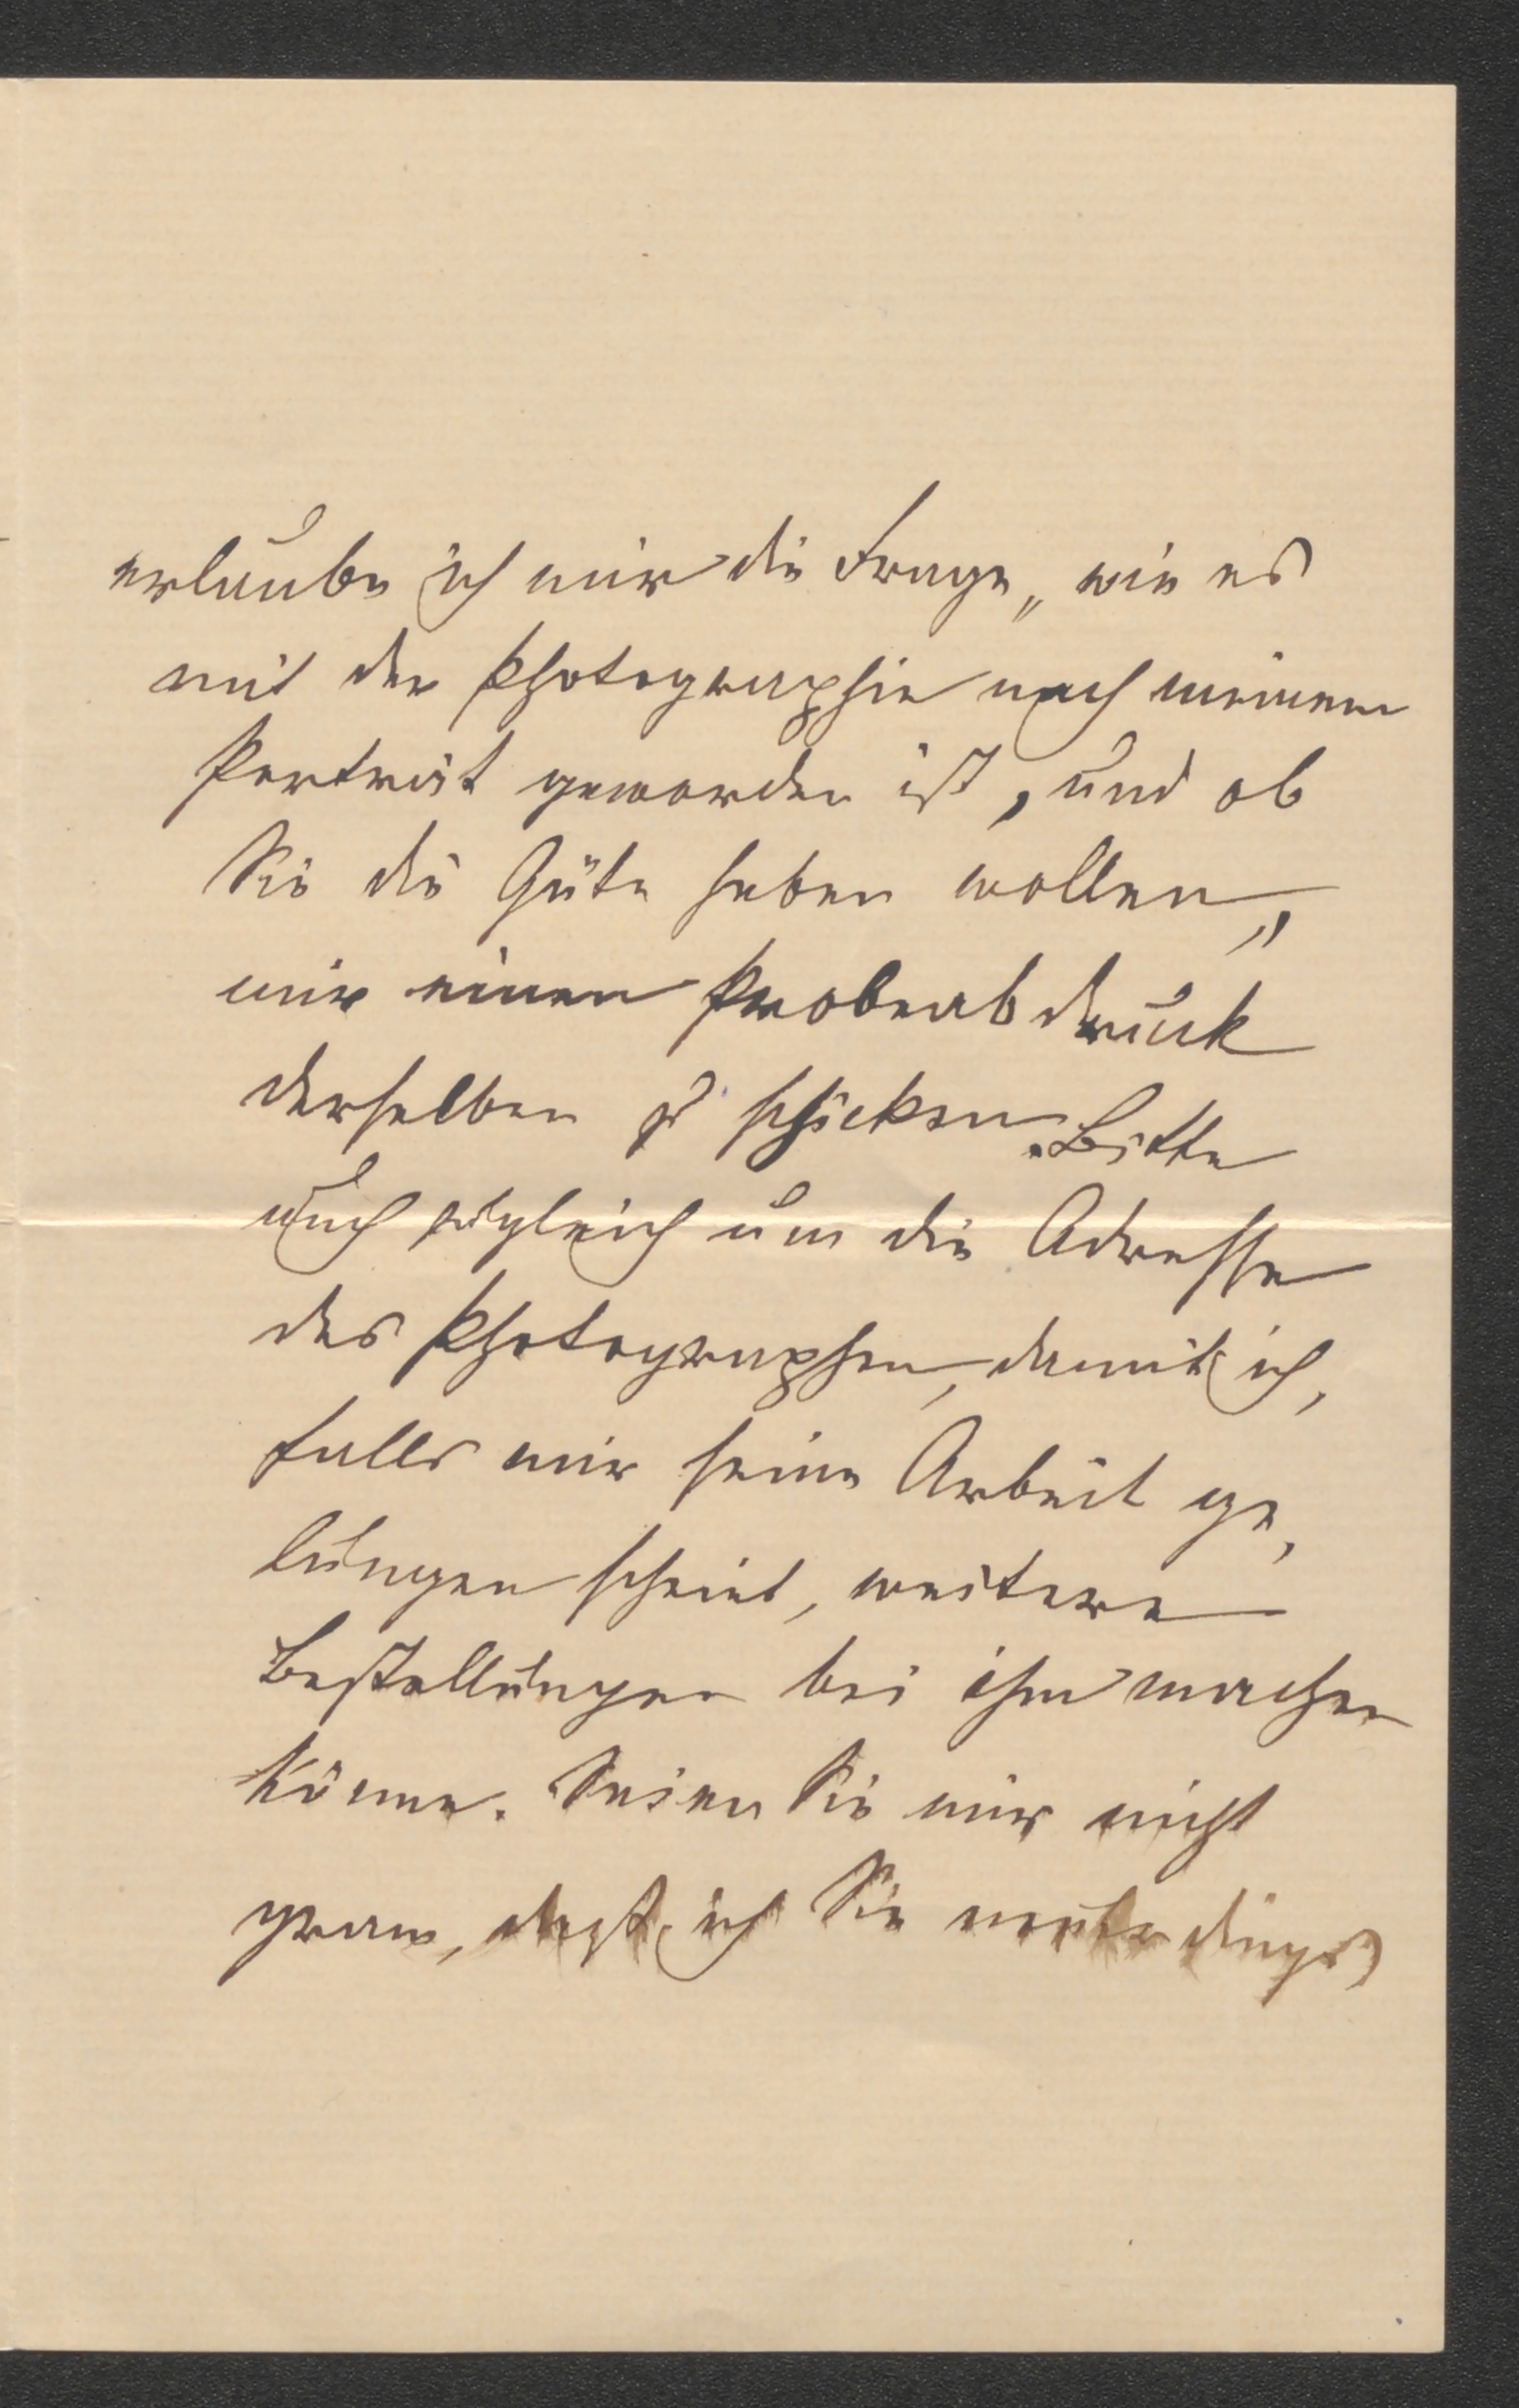 erlaube ich mir die Frage, wie es
mit der Photographie nach meinem
Porträt geworden ist, und ob
Sie die Güte haben wollen,
mir einen Probeabdruck
derselben zu schicken. Bitte
auch zugleich um die Adresse
des Photographen, damit ich,
falls mir seine Arbeit ge,
lungen scheint, weitere
Bestellungen bei ihm machen
könne. Seien Sie mir nicht
gram, daß ich Sie neuerdings